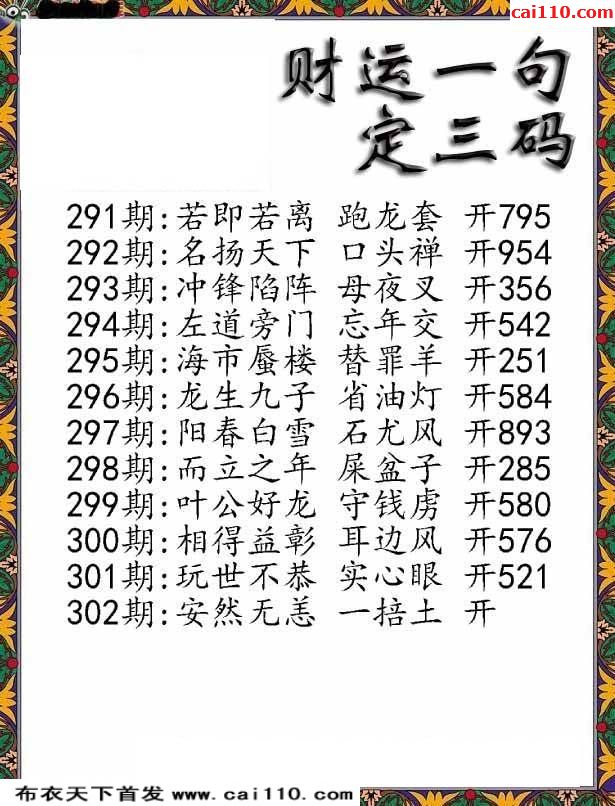 cai110.com
财运一句
定三码
291期:若即若离 跑龙套 开795
292期:名扬天下 口头禅 开954
293期:冲锋陷阵 母夜叉 开356
294期:左道旁门 忘年交 开542
295期:海市蜃楼 替罪羊 开251
296期:龙生九子 省油灯 开584
297期:阳春白雪 石尤风 开893
298期:而立之年 屎盆子 开285
299期:叶公好龙 守钱虏 开580
300期:相得益彰 耳边风 开576
301期:玩世不恭 实心眼 开521
302期:安然无恙 一掊土 开
布衣天下首发 www.cai110.com